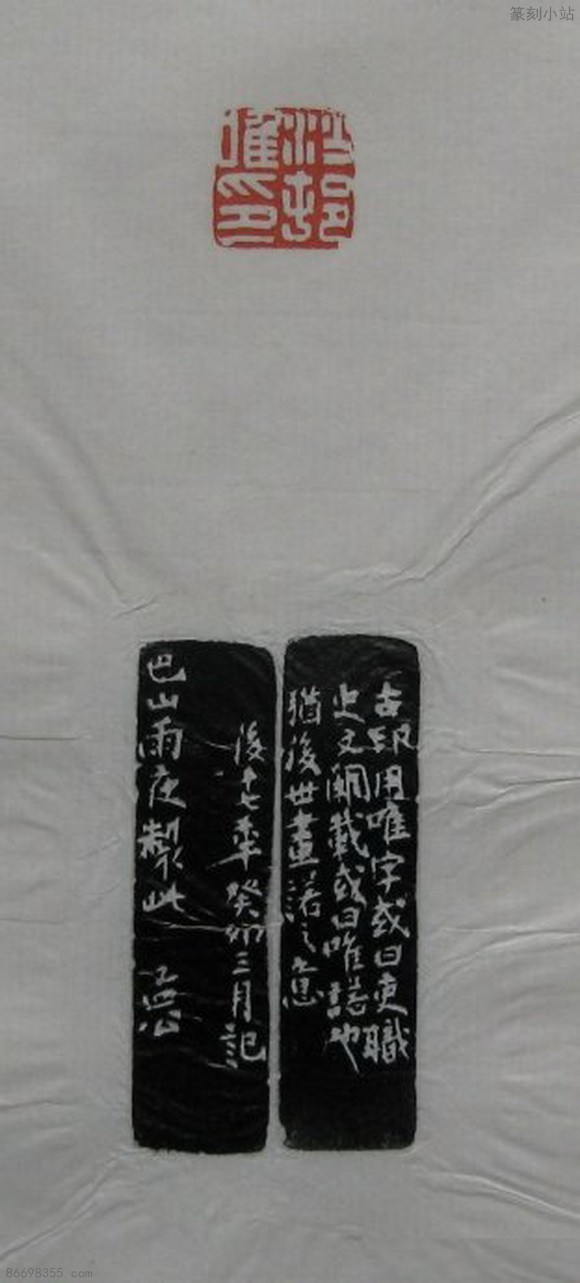 篆刻小站
沙邨
唯印
古印用唯字或曰吏職
史文闕載或曰唯諾也
猶後世畫諾之意
後十七年癸卯三月記
巴山雨夜製此
86698355.com